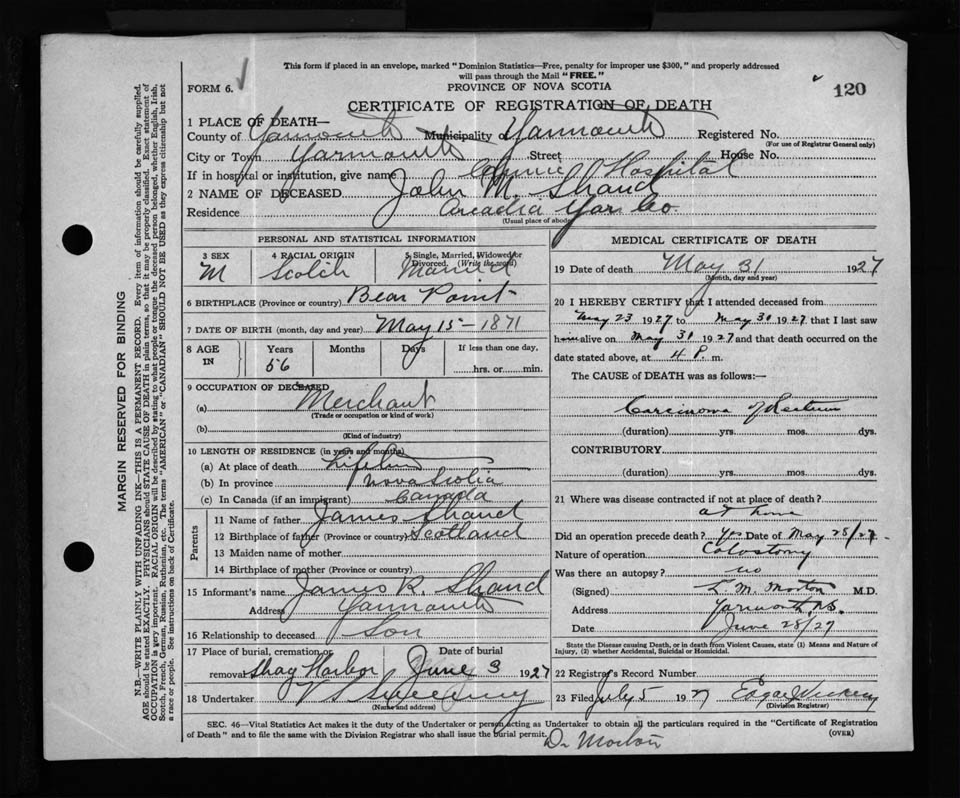 This form if placed in an envelope, marked "Dominion Statistics—Free, penalty for improper use $300," and properly addressed
will pass through the Mail "FREE."
FORM 6.
PROVINCE OF NOVA SCOTIA
120
CERTIFICATE OF REGISTRATION OF DEATH
1 PLACE OF DEATH—
County of Yarmouth Municipality of Yarmouth Registered No.
(For use of Registrar General only)
City or Town Yarmouth Street House No.
If in hospital or institution, give name Hospital
2 NAME OF DECEASED John M. Shand
Residence Arcadia Yar. Co.
(Usual place of abode)
PERSONAL AND STATISTICAL INFORMATION
3 SEX 4 RACIAL ORIGIN 5 Single, Married, Widowed or Divorced. (Write the word)
M Scotch Married
6 BIRTHPLACE (Province or country) Bear Point
7 DATE OF BIRTH (month, day and year) May 15 - 1871
8 AGE IN Years Months Days If less than one day,
56 hrs. or min.
9 OCCUPATION OF DECEASED
(a) Merchant
(Trade or occupation or kind of work)
(b)
(Kind of industry)
10 LENGTH OF RESIDENCE (in years and months)
(a) At place of death
(b) In province Nova Scotia
(c) In Canada (if an immigrant) Canada
Parents
11 Name of father James Shand
12 Birthplace of father (Province or country) Scotland
13 Maiden name of mother
14 Birthplace of mother (Province or country)
15 Informant's name James R. Shand
Address Yarmouth
16 Relationship to deceased Son
17 Place of burial, cremation or removal Date of burial
Shag Harbor June 3 1927
18 Undertaker V S Sweeney
(Name and address)
MEDICAL CERTIFICATE OF DEATH
19 Date of death May 31 1927
(Month, day and year)
20 I HEREBY CERTIFY that I attended deceased from
May 23 1927 to May 30 1927 that I last saw
him alive on May 30 1927 and that death occurred on the
date stated above, at 4 P. m.
The CAUSE of DEATH was as follows:—
Carcinoma of Rectum
(duration) yrs. mos. dys.
CONTRIBUTORY
(duration) yrs. mos. dys.
21 Where was disease contracted if not at place of death?
at home
Did an operation precede death? Yes Date of May 25/27.
Nature of operation Colostomy
Was there an autopsy? no
(Signed) L. M. Morton M.D.
Address Yarmouth, N.S.
Date June 28/27
State the Disease causing Death, or in death from Violent Causes, state (1) Means and Nature of
Injury, (2) whether Accidental, Suicidal or Homicidal.
22 Registrar's Record Number
23 Filed July 5 1927 Edgar
(Division Registrar)
SEC. 46—Vital Statistics Act makes it the duty of the Undertaker or person acting as Undertaker to obtain all the particulars required in the "Certificate of Registration
of Death" and to file the same with the Division Registrar who shall issue the burial permit.
(OVER)
Dr Morton
MARGIN RESERVED FOR BINDING
N.B.—WRITE PLAINLY WITH UNFADING INK—THIS IS A PERMANENT RECORD. Every item of information should be carefully supplied.
AGE should be stated EXACTLY. PHYSICIANS should STATE CAUSE OF DEATH in plain terms, so that it may be properly classified. Exact statement of
OCCUPATION is very important. RACIAL ORIGIN will be described by stating to what people or tongue the deceased person belonged, whether English, Irish,
Scotch, French, German, Russian, Ruthenian, etc. The terms "AMERICAN" or "CANADIAN" SHOULD NOT BE USED as they express citizenship but not
a race or people. See instructions on back of Certificate.